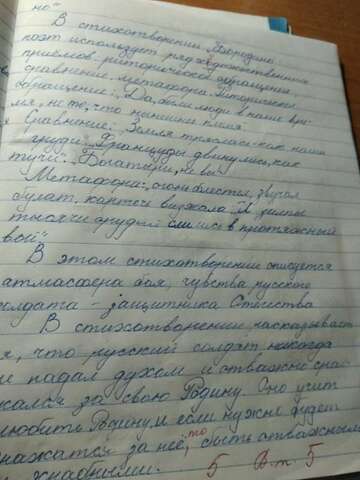 но"
В стихотворении Бородино
поэт использует ряд художественных
приёмов: риторическое обращение,
сравнение, метафора. Риторическое
обращение: Да, были люди в наше вре-
мя, не то, что нынешнее племя.
Сравнение: Земля тряслась как наши
груди. Французы двинулись, как
тучи. Богатыри, не вы
Метафора: огонь блестел, звучал
булат, картечь визжала. И залпы
тысячи орудий слились в протяжный
вой"
В этом стихотворении описуется
атмасфера боя, чувства русского
солдата - защитника Отечества
В стихотворении расказывает
я, что русский солдат никогда
не падал духом и отважно сра
жался за свою Родину. Оно учит
любить Родину, и если нужно будет
то
ражатся за неё, быть отважными
5 В.т. 5